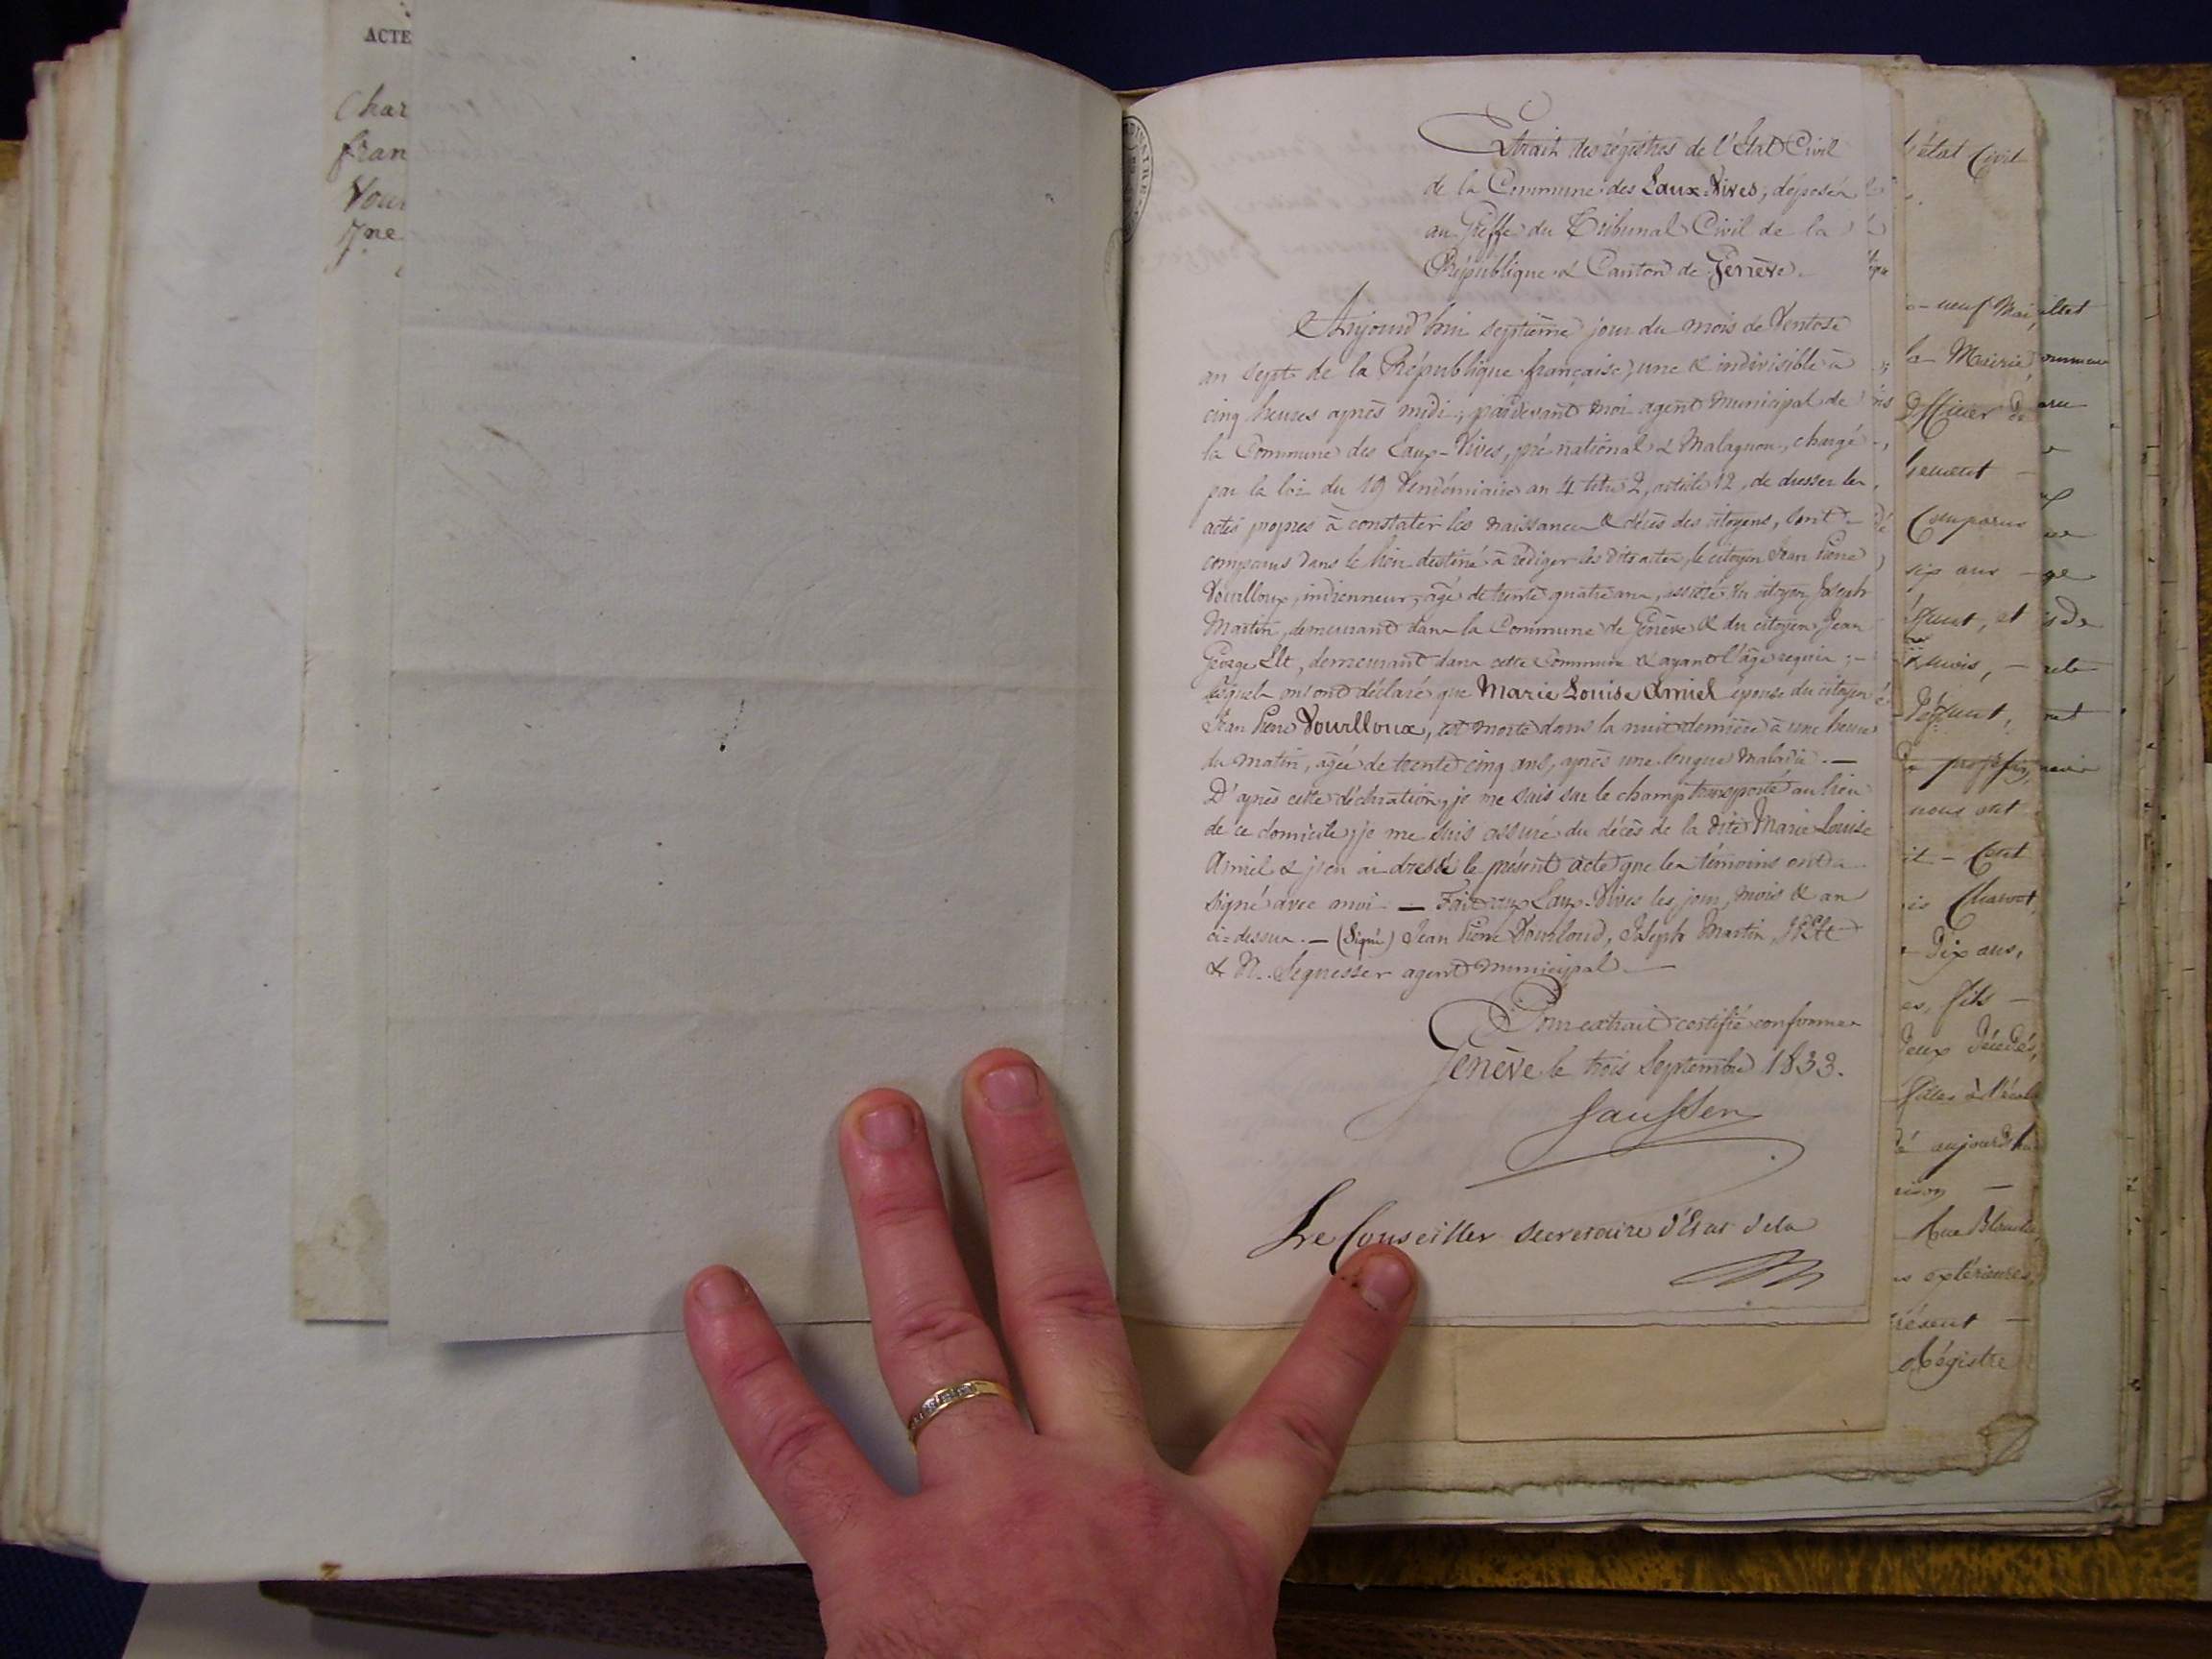 ACTE
Char
fran
Vour
Extrait des régistres de l'Etat Civil
de la Commune des Eaux-Vives, déposés
au Greffe du Tribunal Civil de la
République & Canton de Genève.
Aujourd'hui septième jour du mois de Ventose
an sept de la République française, une & indivisible à
cinq heures après midi, pardevant moi agent municipal de
la Commune des Eaux-Vives, pré national & Malagnou, chargé
par la loi du 19 Vendémiaire an 4 titre 2, article 12, de dresser les
actes propres à constater les naissances & décès des citoyens, sont
comparus dans le lieu destiné à rédiger les dits actes, le citoyen Jean Pierre
Vourlloux, indienneur, âgé de trente quatre ans, assisté du citoyen Joseph
Martin, demeurant dans la Commune de Genève & du citoyen Jean
George Elt, demeurant dans cette Commune & ayant l'âge requis ;
lesquels m'ont déclaré que Marie Louise Amiel épouse du citoyen
Jean Pierre Vourlloux, est morte dans la nuit dernière à une heure
du matin, agée de trente cinq ans, après une longue maladie. —
D'après cette déclaration, je me suis sur le champ transporté au lieu
de ce domicile, je me suis assuré du décès de la dite Marie Louise
Amiel & j'en ai dressé le présent acte que les témoins ont
signé avec moi — Fait aux Eaux-Vives les jour, mois & an
ci-dessus. — (Signé) Jean Pierre Vourloud, Joseph Martin, Elt
& N. Seguesser agent municipal. —
Pour extrait certifié conforme
Genève le trois Septembre 1833.
Gaussen
Le Conseiller Secretaire d'Etat
l'état Civil
neuf Mai
la Mairie,
Officier de
Comparus
six ans
nous ont
Charvot,
dix ans,
es, fils —
deux décédés,
aujourd'hui
Rue Blanche
extérieures,
Régistre